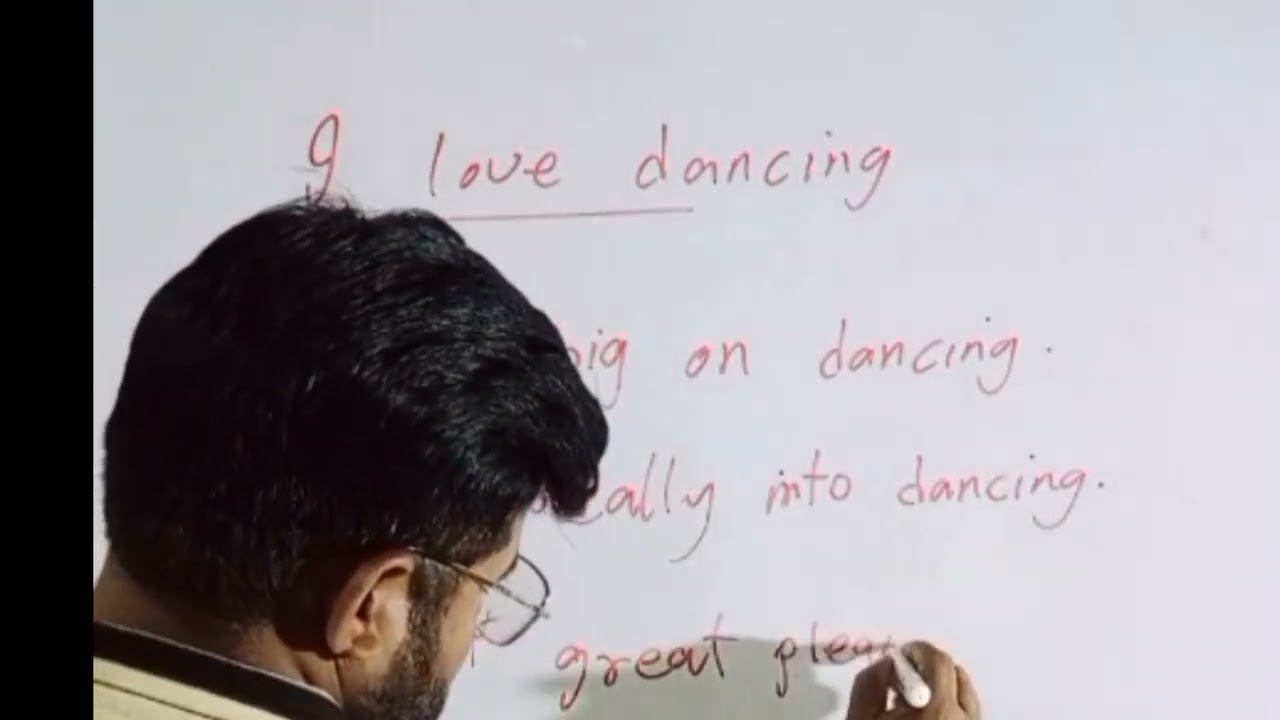 I love dancing
big on dancing.
eally into dancing.
great plea